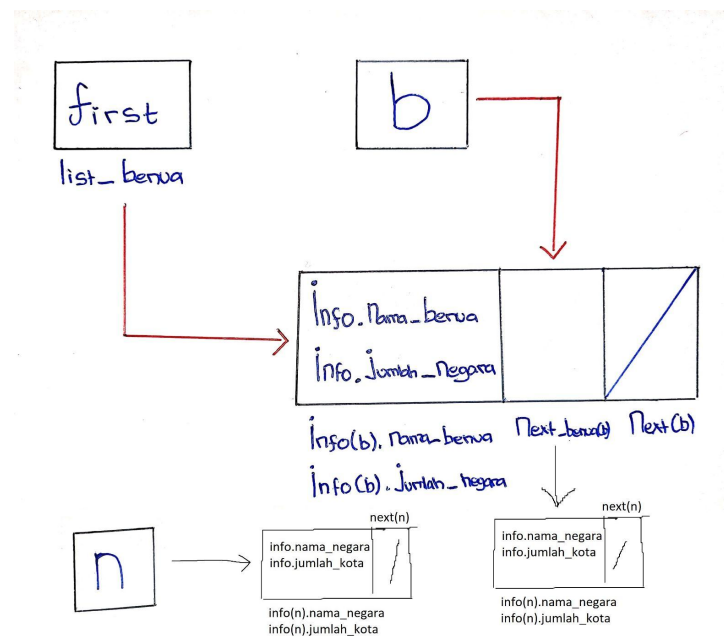 first
b
list_benua
Info.Nama_benua
Info.Jumlah_Negara
Info(b).nama_benua
Next_benua(b)
Next(b)
Info(b).Jumlah_negara
next(n)
next(n)
n
info.nama_negara
info.jumlah_kota
info.nama_negara
info.jumlah_kota
info(n).nama_negara
info(n).jumlah_kota
info(n).nama_negara
info(n).jumlah_kota